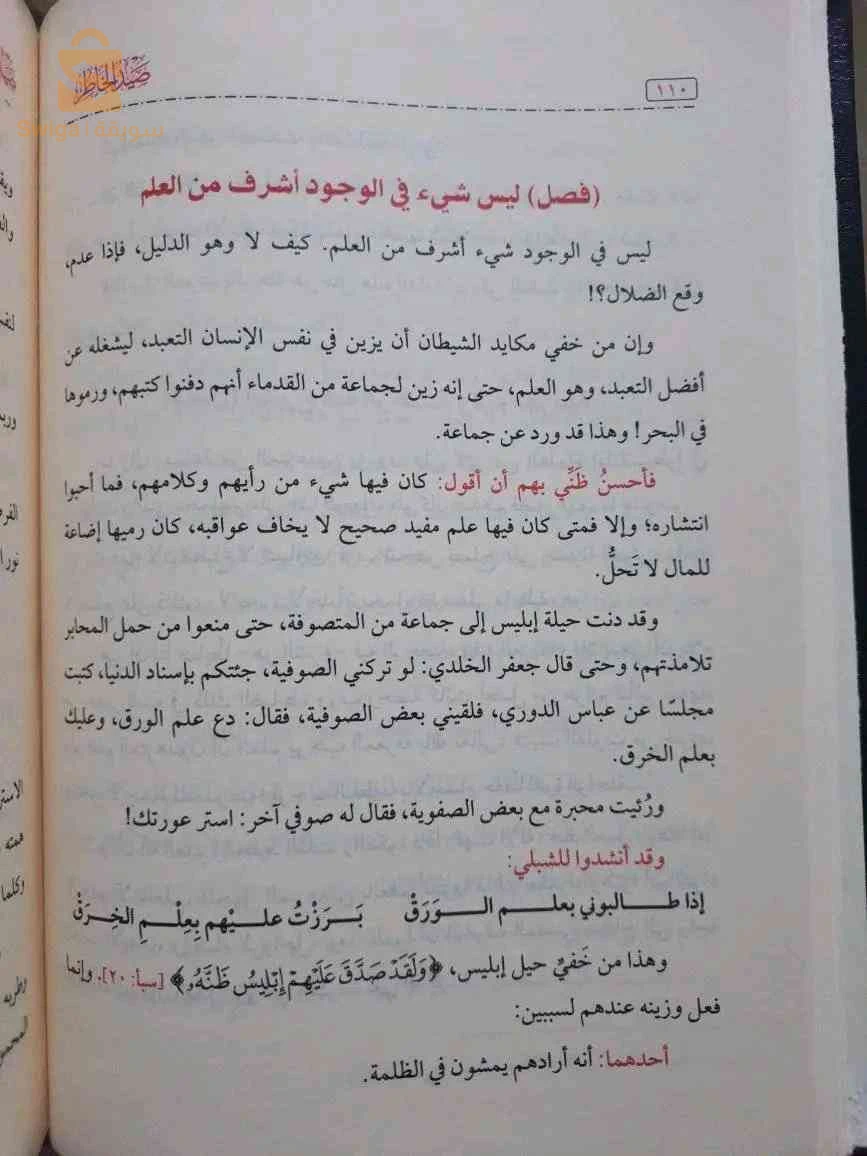 صيد الخاطر
١١٠
سويقة
(فصل) ليس شيء في الوجود أشرف من العلم
ليس في الوجود شيء أشرف من العلم. كيف لا وهو الدليل، فإذا عدم،
وقع الضلال؟!
وإن من خفي مكايد الشيطان أن يزين في نفس الإنسان التعبد، ليشغله عن
أفضل التعبد، وهو العلم، حتى إنه زين لجماعة من القدماء أنهم دفنوا كتبهم، ورموها
في البحر! وهذا قد ورد عن جماعة.
فأحسنُ ظَنِّي بهم أن أقول: كان فيها شيء من رأيهم وكلامهم، فما أحبوا
انتشاره؛ وإلا فمتى كان فيها علم مفيد صحيح لا يخاف عواقبه، كان رميها إضاعة
للمال لا تَحلُّ.
وقد دنت حيلة إبليس إلى جماعة من المتصوفة، حتى منعوا من حمل المحابر
تلامذتهم، وحتى قال جعفر الخلدي: لو تركني الصوفية، جئتكم بإسناد الدنيا، كتبت
مجلسًا عن عباس الدوري، فلقيني بعض الصوفية، فقال: دع علم الورق، وعليك
بعلم الخرق.
ورُئيت محبرة مع بعض الصفوية، فقال له صوفي آخر: استر عورتك!
وقد أنشدوا للشبلي:
إذا طـالبوني بعلـم الـورَقْ بَـرَزْتُ علـيْهم بِعِلْـمِ الخِرَقْ
وهذا من خَفيِّ حيل إبليس، ﴿وَلَقَدْ صَدَّقَ عَلَيْهِمْ إِبْلِيسُ ظَنَّهُۥ﴾ [سبأ: ٢٠]. وإنما
فعل وزينه عندهم لسببين:
أحدهما: أنه أرادهم يمشون في الظلمة.